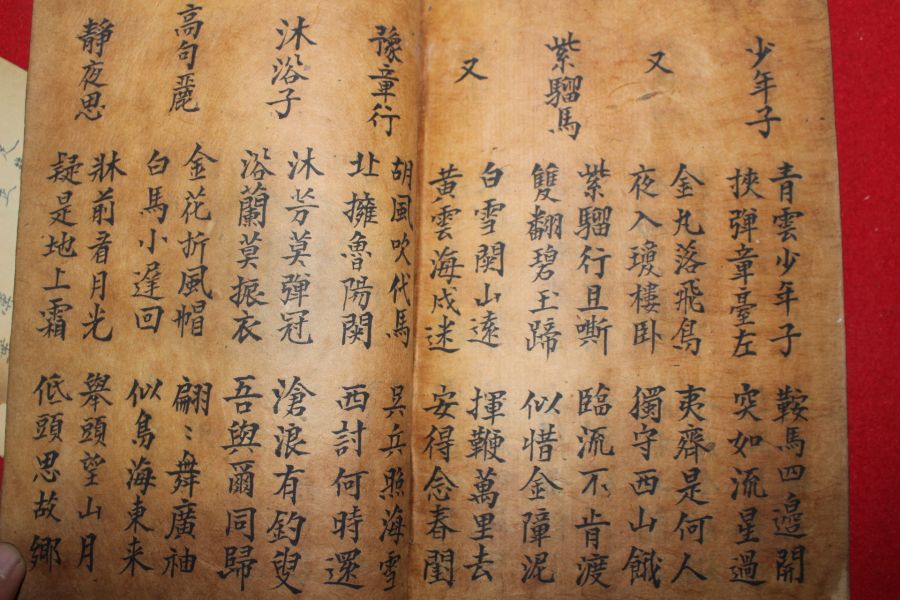 少年子
青雲少年子
挾彈章臺左
鞍馬四邊開
突如流星過
又
金丸落飛鳥
夜入瓊樓卧
夷齊是何人
獨守西山餓
紫騮馬
紫騮行且嘶
雙翻碧玉蹄
臨流不肯渡
似惜金障泥
又
白雪関山遠
黄雲海戍迷
揮鞭萬里去
安得念春閨
豫章行
胡風吹代馬
北擁魯陽関
吳兵照海雪
西討何時還
沐浴子
沐芳莫彈冠
浴蘭莫振衣
滄浪有釣叟
吾與爾同歸
高句麗
金花折風帽
白馬小遲回
翩〻舞廣袖
似鳥海東来
靜夜思
牀前看月光
疑是地上霜
舉頭望山月
低頭思故鄉